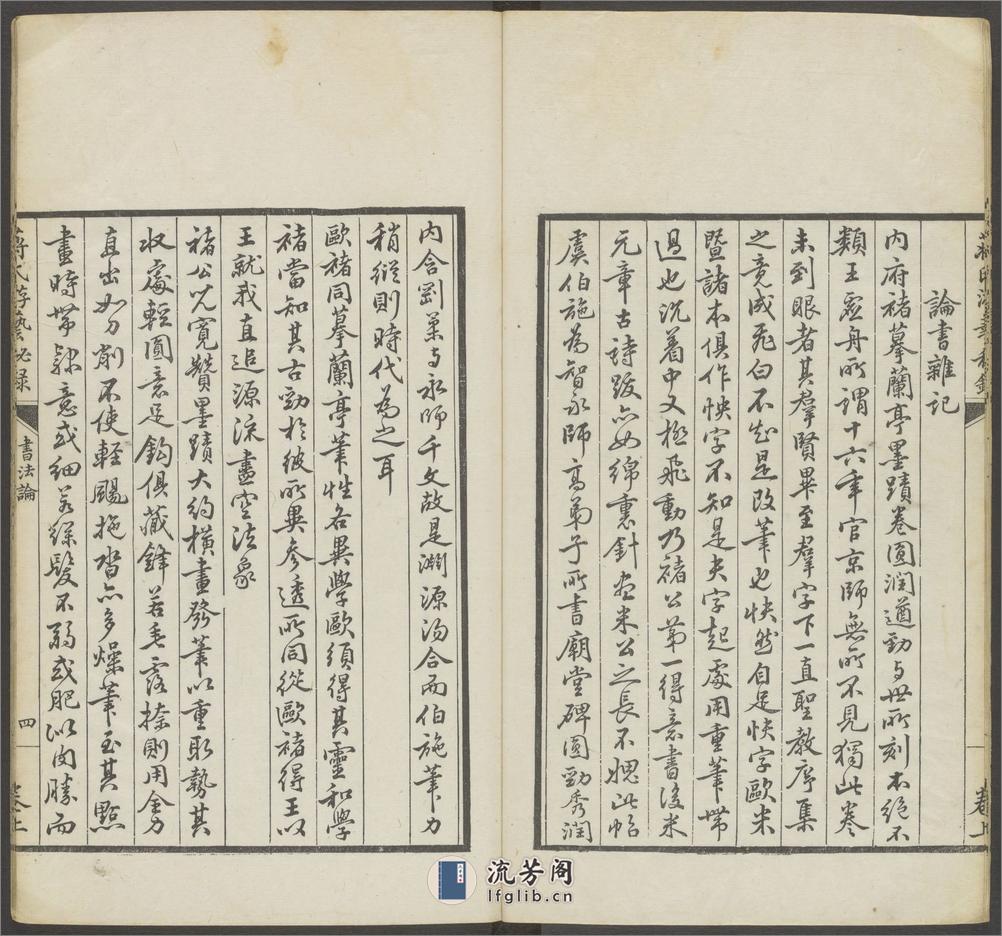 論書雜記
內府褚摹蘭亭墨蹟卷圓潤遒勁与世所刻本絕不
類王虛舟所謂十六年官京師無所不見獨此卷
未到眼者其羣賢畢至羣字下一直聖教序集
之竟成飛白不知是改筆也快然自足快字歐米
暨諸本俱作怏字不知是夬字起處用重筆帶
過也沉着中又極飛動乃褚公第一得意書後米
元章古詩跋亦如綿裹針盡米公之長不媿此帖
虞伯施為智永師高弟子所書廟堂碑圓勁秀潤
內含剛柔与永師千文故是淵源沕合而伯施筆力
稍縱則時代為之耳
歐褚同摹蘭亭筆性各異學歐須得其靈和學
褚當知其古勁於彼所異參透所同從歐褚得王以
王就我直追源流畫空法象
褚公兒寬贊墨蹟大約橫畫發筆以重取勢其
收處輕圓意足鈎俱藏鋒若垂露捺則用全力
直出如刀削不使輕颺拖沓亦多燥筆至其點
畫時帶隸意或細若綠髮不弱或肥以肉勝而
蔣氏游藝祕錄
書法論
四
卷上
流芳阁
lfglib.cn